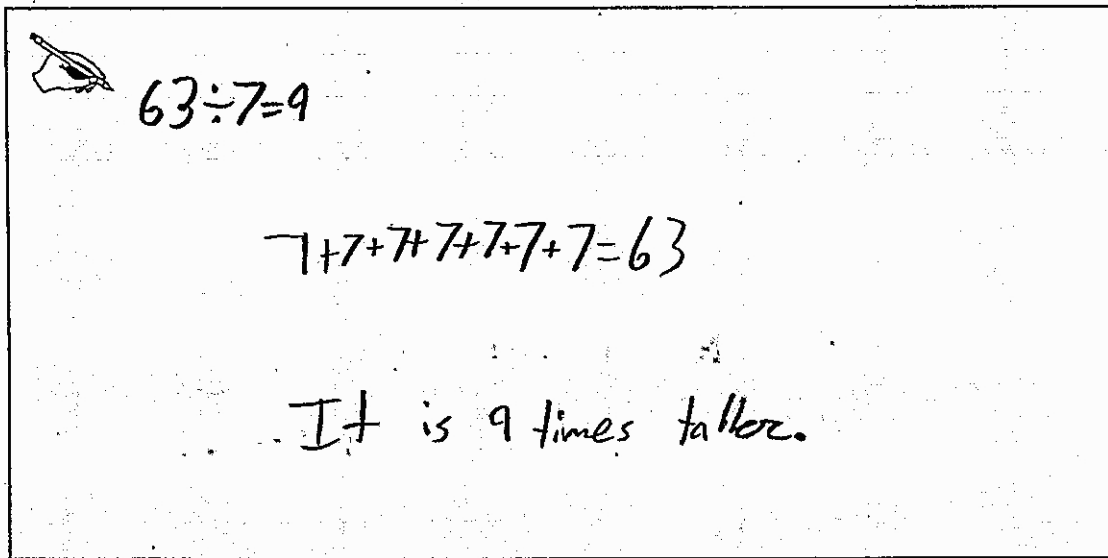 63÷7=9
7+7+7+7+7+7+7=63
It is 9 times taller.